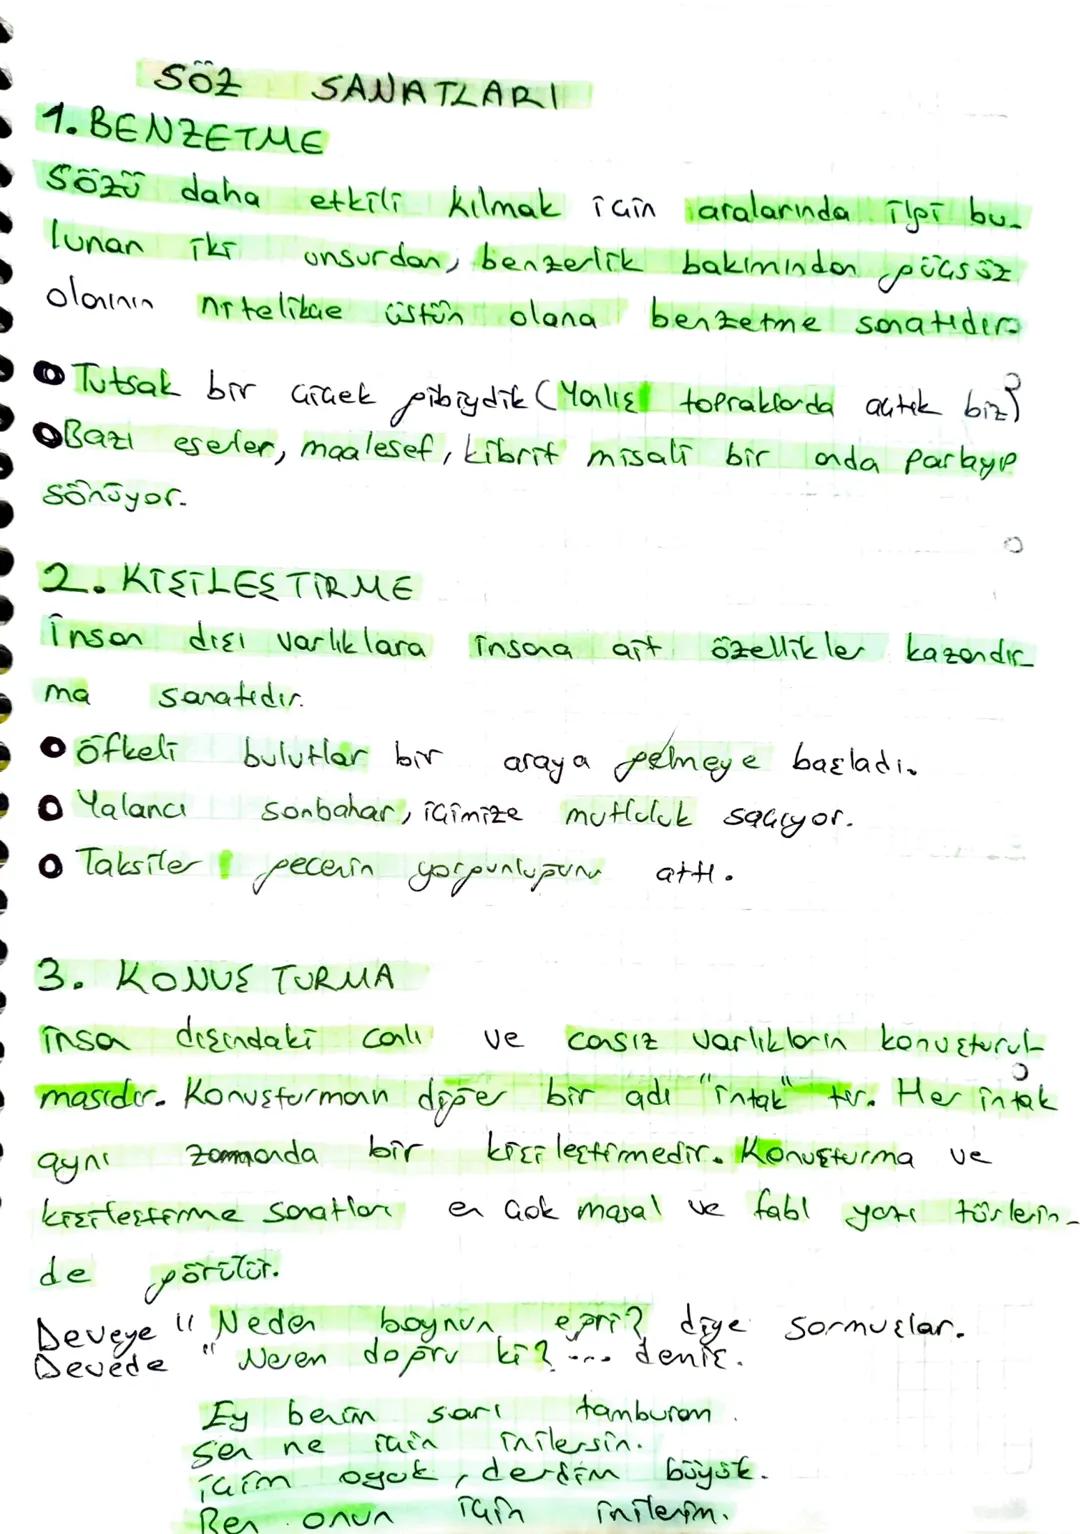 SÖZ SANATLARI
1. BENZETME
Sözü daha etkili kılmak için aralarında ilgi bu-
lunan iki unsurdan, benzerlik bakımından güçsüz
olanının nitelikçe üstün olana benzetme sanatıdır.
Tutsak bir çiçek gibiydik (Yanlış topraklarda açtık biz)
Bazı eserler, maalesef, kibrit misali bir anda parlayıp
sönüyor.
2. KİŞİLEŞTİRME
İnsan dışı varlıklara insana ait özellikler kazandır-
ma sanatıdır.
Öfkeli bulutlar bir araya gelmeye başladı.
Yalancı sonbahar, içimize mutluluk saçıyor.
Taksiler gecenin yorgunluğunu attı.
3. KONUŞTURMA
İnsa dışındaki canlı ve cansız varlıkların konuşturul-
masıdır. Konuşturmanın diğer bir adı "intak" tır. Her intak
aynı zamanda bir kişileştirmedir. Konuşturma ve
kişileştirme sanatları en çok masal ve fabl yazı türlerin-
de görülür.
Deveye "Neden boynun eğri? diye sormuşlar.
Devede "Neren doğru ki? ... demiş.
Ey benim sarı tamburam.
Sen ne için inilersin.
İçim oyuk, derdim büyük.
Ben onun için inilerim.